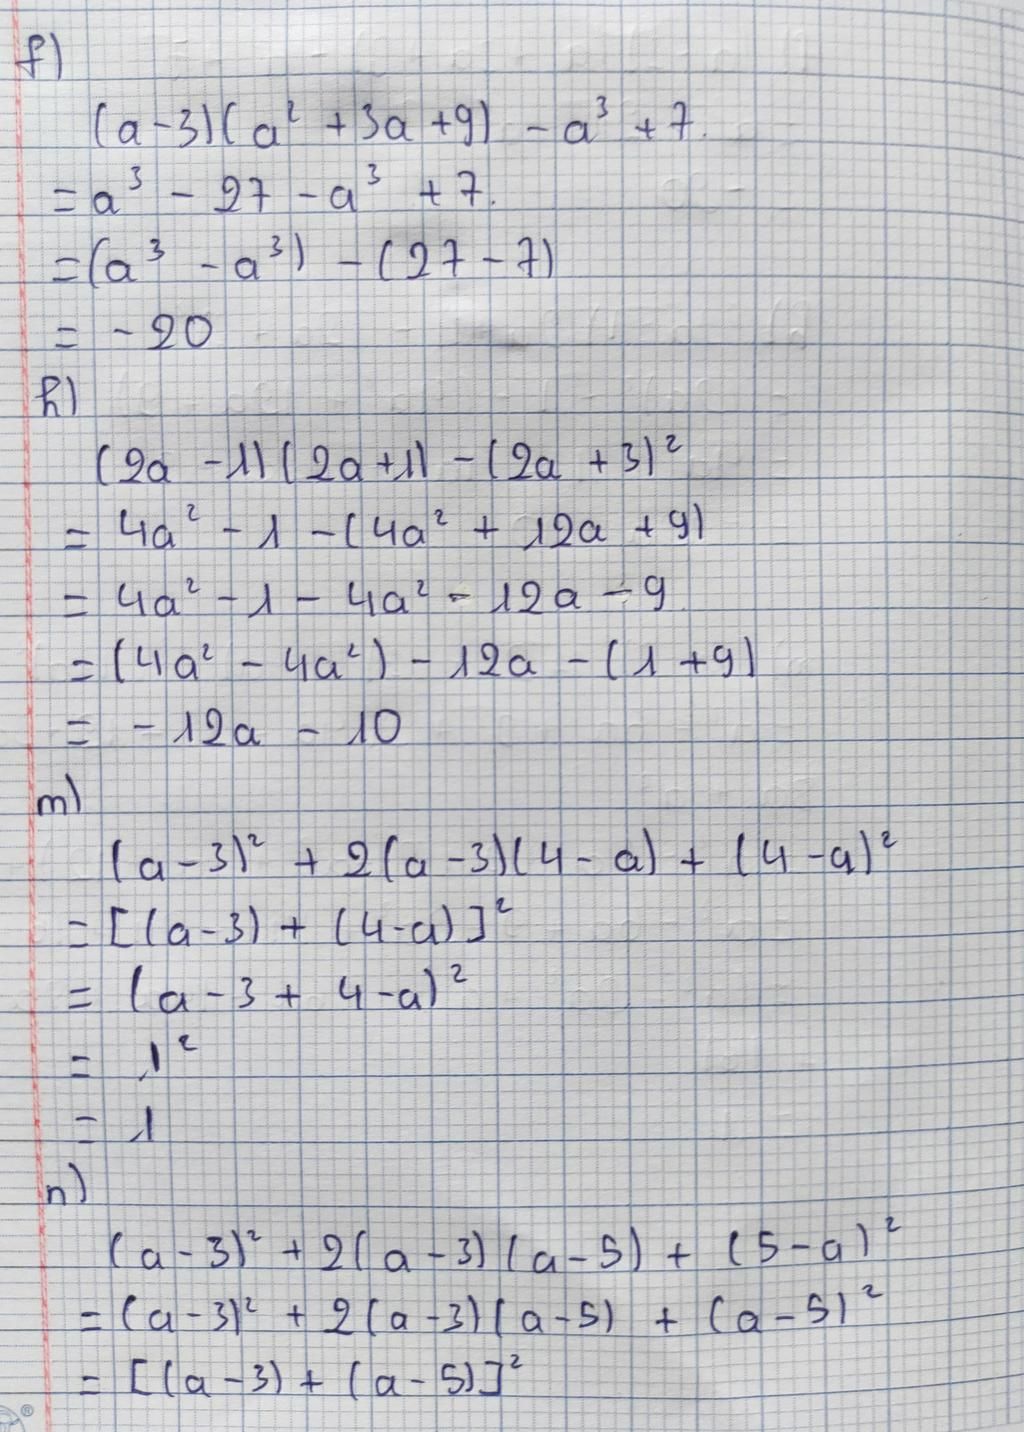 f)
(a-3)(a² + 3a + 9) - a³ + 7.
= a³ - 27 - a³ + 7.
= (a³ - a³) - (27 - 7)
= - 20
h)
(2a - 1)(2a + 1) - (2a + 3)²
= 4a² - 1 - (4a² + 12a + 9)
= 4a² - 1 - 4a² - 12a - 9
= (4a² - 4a²) - 12a - (1 + 9)
= - 12a - 10
m)
(a - 3)² + 2(a - 3)(4 - a) + (4 - a)²
= [(a - 3) + (4 - a)]²
= (a - 3 + 4 - a)²
= 1²
= 1
n)
(a - 3)² + 2(a - 3)(a - 5) + (5 - a)²
= (a - 3)² + 2(a - 3)(a - 5) + (a - 5)²
= [(a - 3) + (a - 5)]²